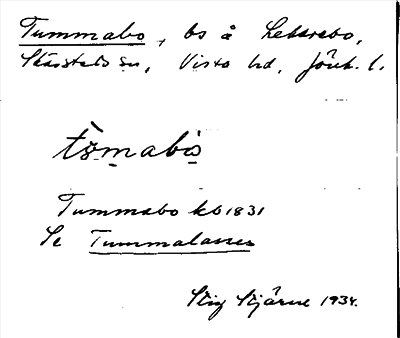 Tummabo, bs å Lekarebo,
Skärstads sn, Vista hd, Jönk. l.
tömabo
Tummabo kb 1831
Se Tummalassen
Stig Stjärne 1934.